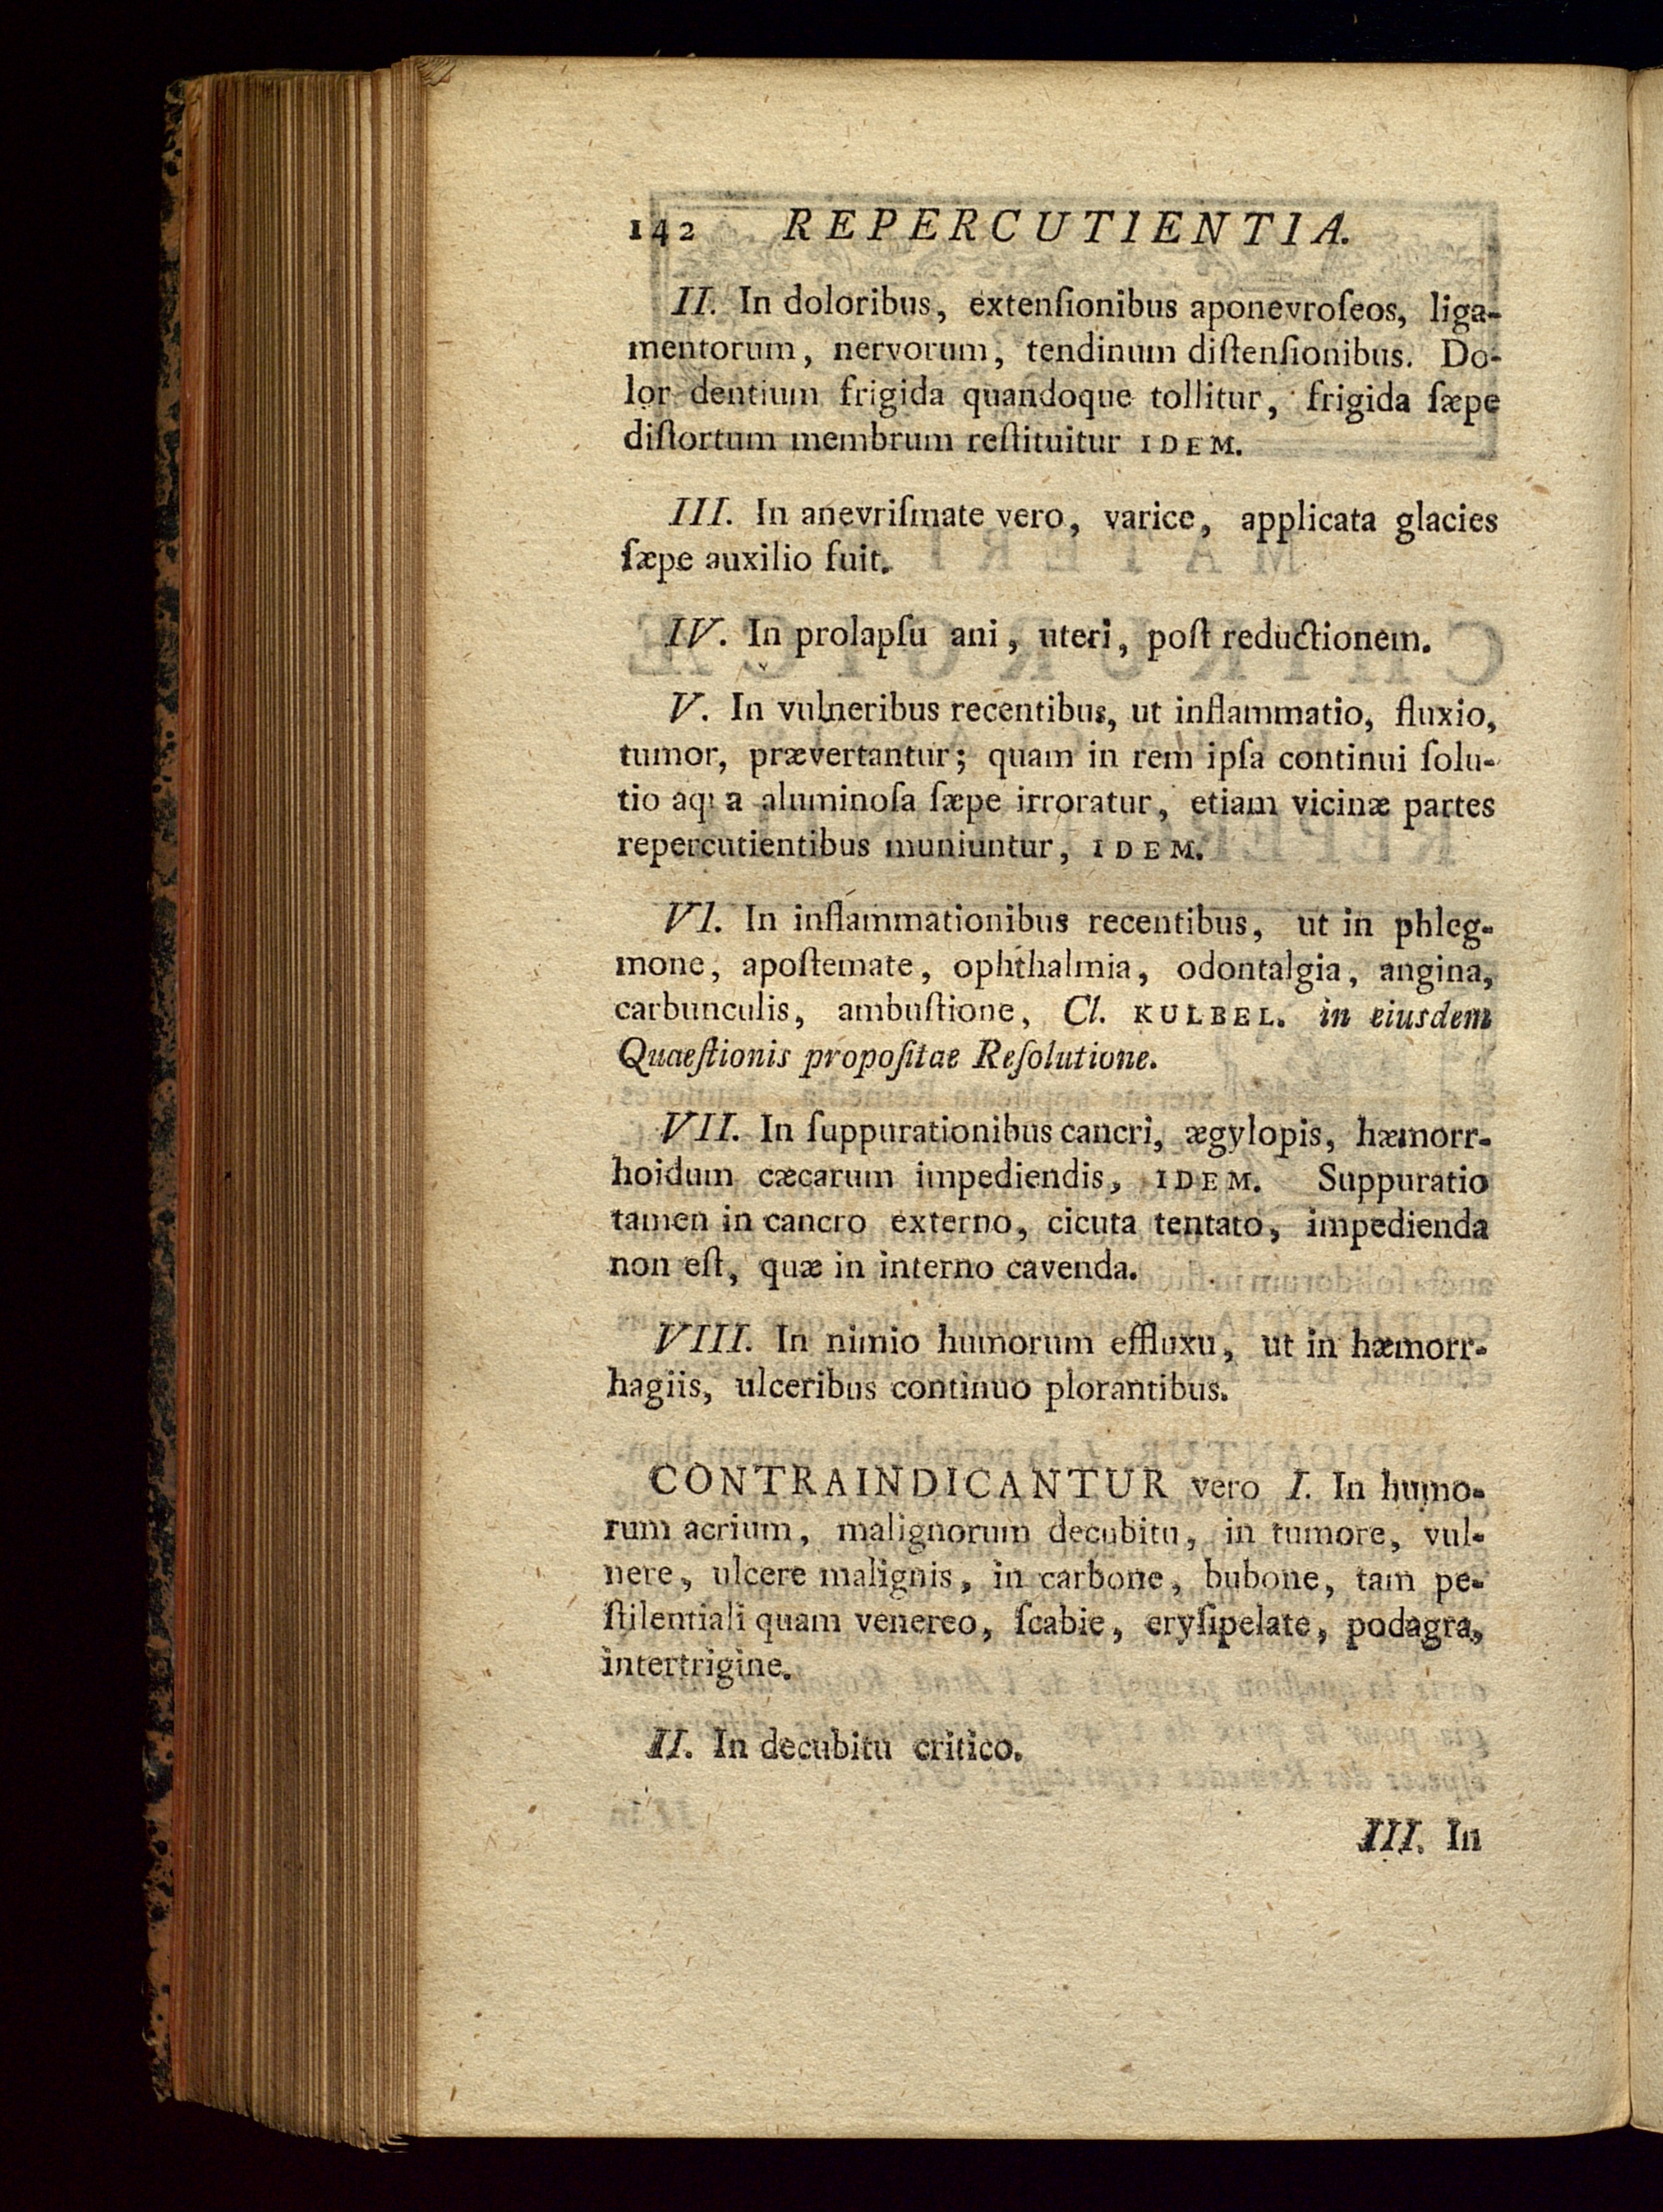 142 REPERCUTIENTIA.
II. In doloribus, extenſionibus aponevroſeos, liga-
mentorum, nervorum, tendinum diſtenſionibus. Do-
lor dentium frigida quandoque tollitur, frigida ſæpe
diſtortum membrum reſtituitur IDEM.
III. In anevriſmate vero, varice, applicata glacies
ſæpe auxilio fuit.
IV. In prolapſu ani, uteri, poſt reductionem.
V. In vulneribus recentibus, ut inflammatio, fluxio,
tumor, prævertantur; quam in rem ipſa continui ſolu-
tio aqua aluminoſa ſæpe irroratur, etiam vicinæ partes
repercutientibus muniuntur, IDEM.
VI. In inflammationibus recentibus, ut in phleg-
mone, apoſtemate, ophthalmia, odontalgia, angina,
carbunculis, ambuſtione, Cl. KULBEL. in eiusdem
Quaeſtionis propoſitae Reſolutione.
VII. In ſuppurationibus cancri, ægylopis, hæmorr-
hoidum cæcarum impediendis, IDEM. Suppuratio
tamen in cancro externo, cicuta tentato, impedienda
non eſt, quæ in interno cavenda.
VIII. In nimio humorum effluxu, ut in hæmorr-
hagiis, ulceribus continuo plorantibus.
CONTRAINDICANTUR vero I. In humo-
rum acrium, malignorum decubitu, in tumore, vul-
nere, ulcere malignis, in carbone, bubone, tam pe-
ſtilentiali quam venereo, ſcabie, eryſipelate, podagra,
intertrigine.
II. In decubitu critico.
III. In